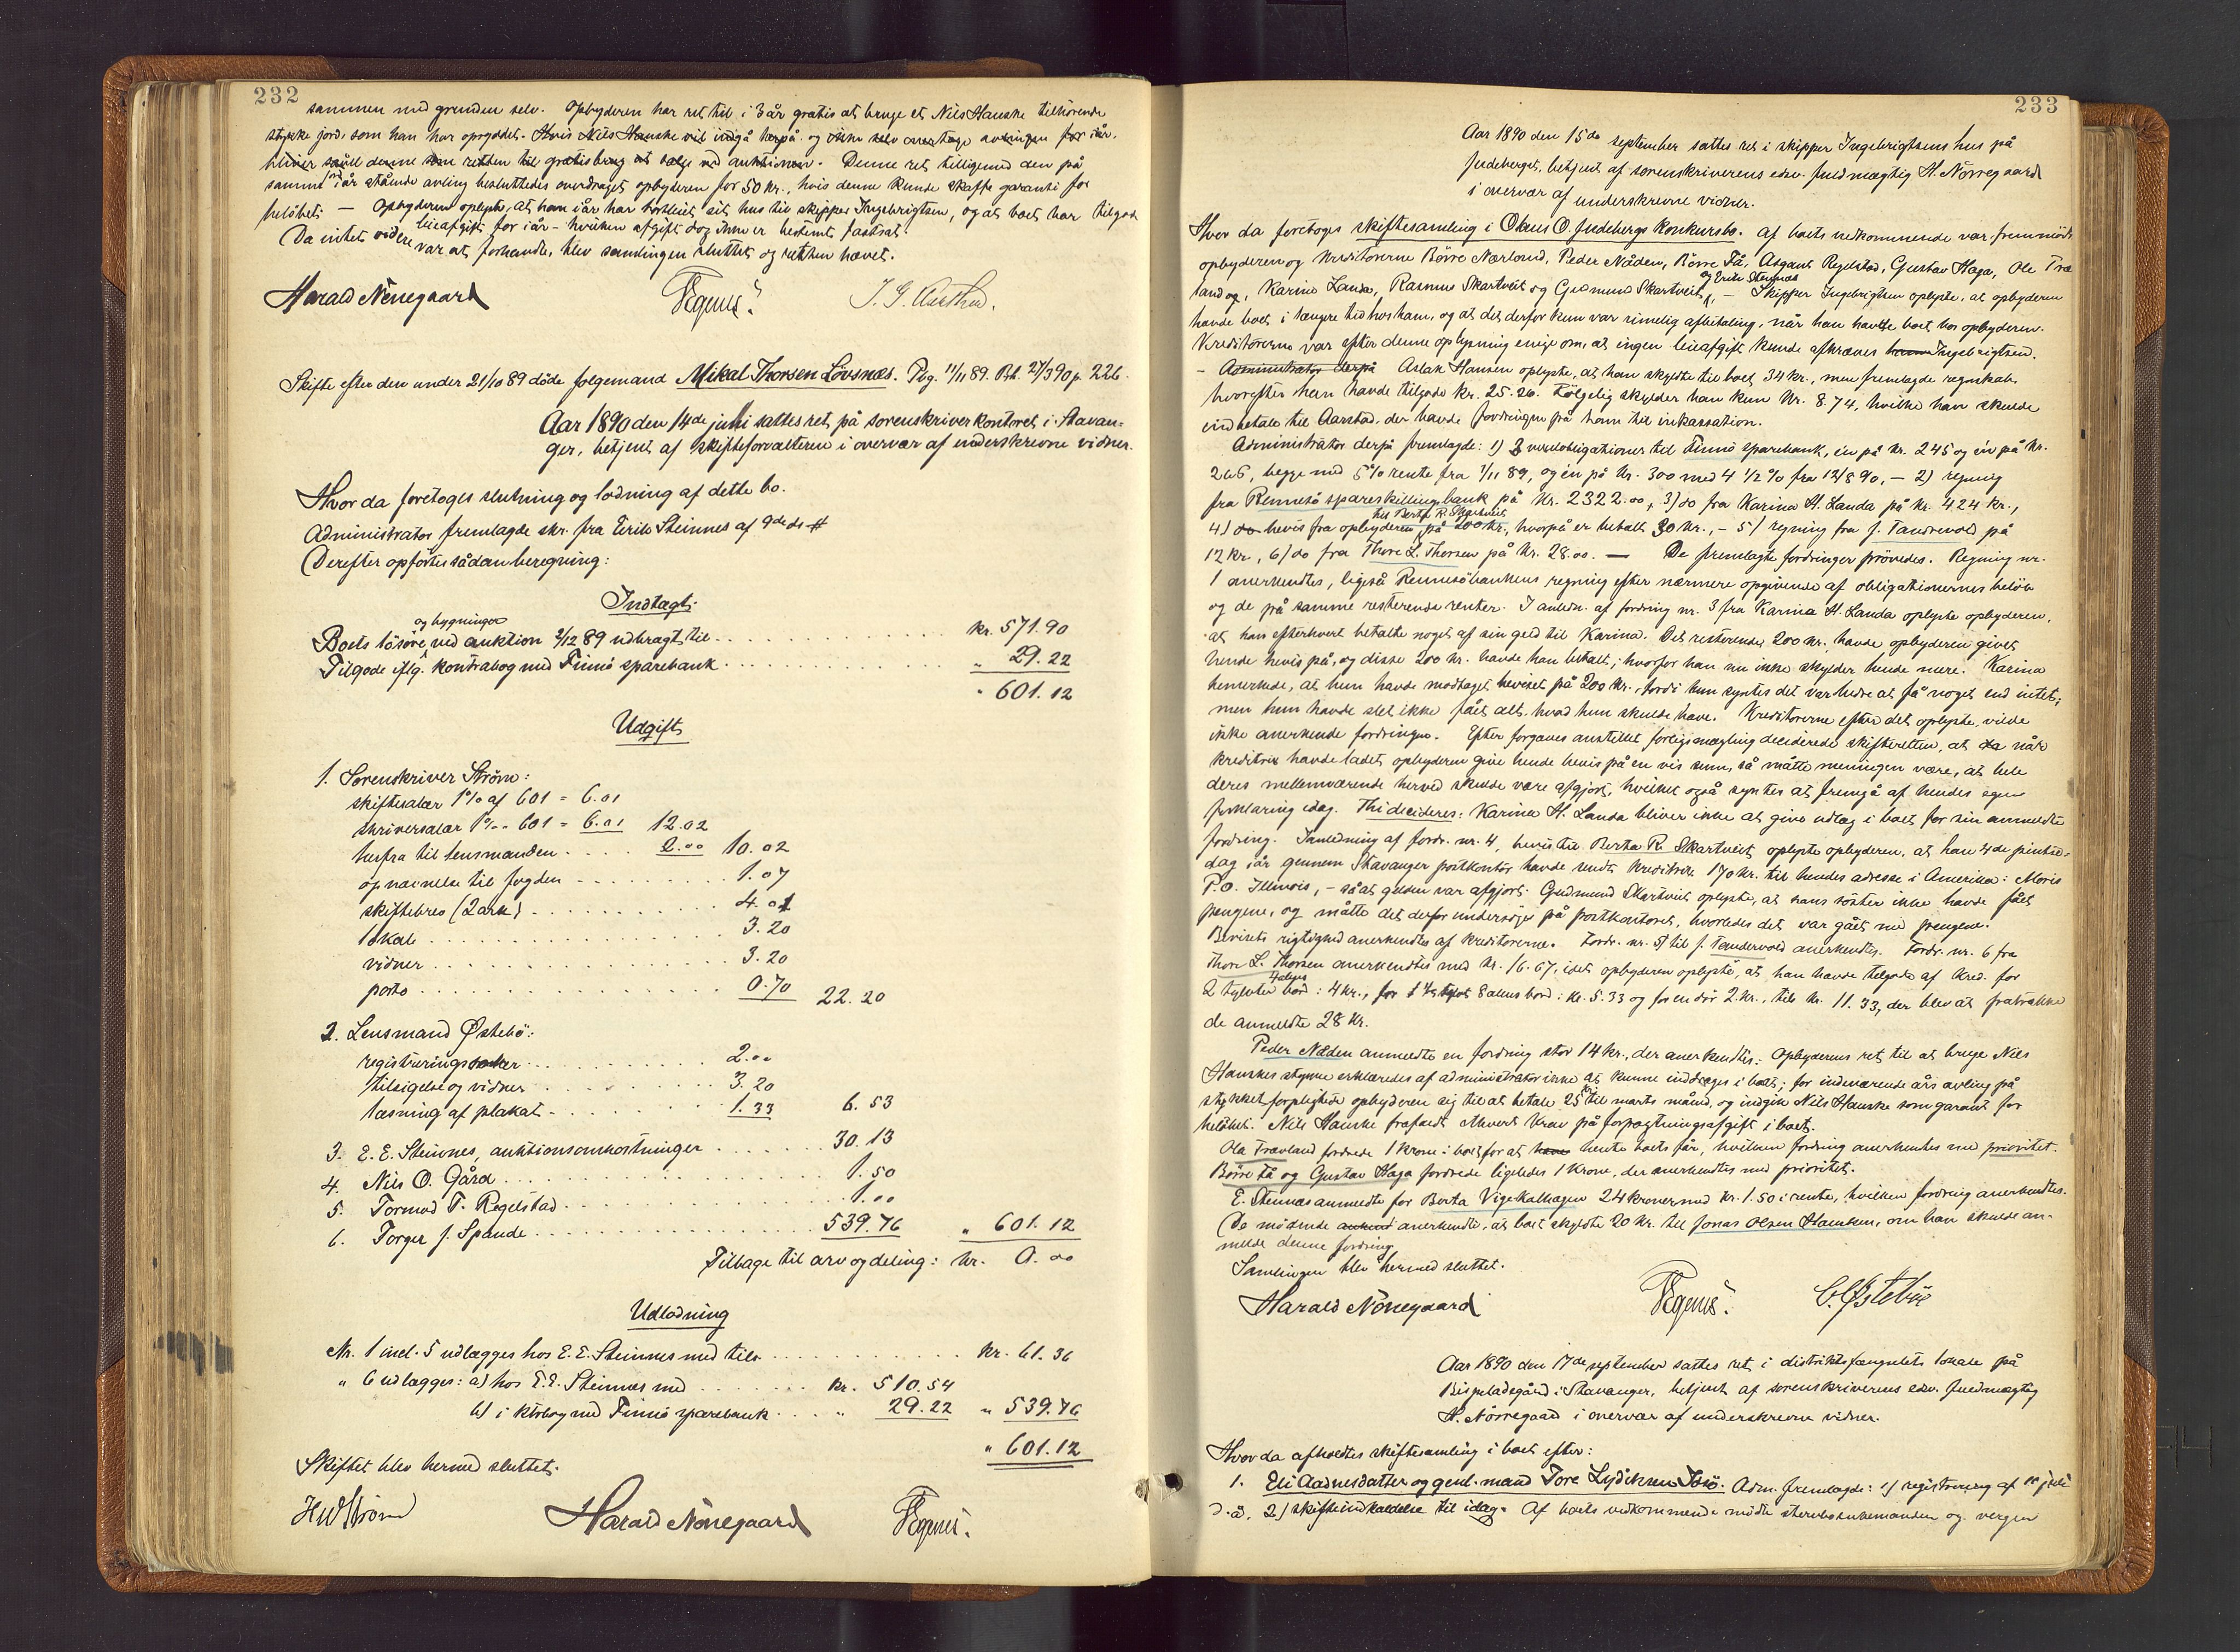 232
sammen med grunden selv. Opbyderen har ret til i 3 år gratis at bruge et Nils Hauske tilhørende
stykke jord, som han har opryddet. Hvis Nils Hauske vil indgå herpå og ikke selv overtage avlingen for iår,
bliver såvel denne som retten til gratis brug at sælge ved auktionen. Denne ret tilligemed den på
samme iår stående avling besluttedes overdraget opbyderen for 50 kr., hvis denne kunde skaffe garanti for
beløbet. — Opbyderen oplyste, at han iår har bortleiet sit hus til skipper Ingebrigtsen, og at boet har tilgode
leieafgift for iår – hvilken afgift dog ikke er bestemt fastsat.
Da intet videre var at forhandle, blev samlingen sluttet og retten hævet.
Harald Nörregaard
Skifte efter den under 21/10 89 døde følgemand Mikal Thorsen Lövsnæs. Pbg. 11/11 89. Bh. 27/3 90 p. 226.
Aar 1890 den 14de juli sattes ret på sorenskriverkontoret i Stavan-
ger, betjent af skifteforvalteren i overvær af underskrevne vidner.
Hvor da foretoges slutning og lodning af dette bo.
Administrator fremlagde skr. fra Eirik Steinnes af 9de ds #
Derefter opførtes sådan beregning:
Indtægt
og bygninger
Boets løsøre ved auktion 2/12 89 udbragt til . . . kr. 571.90
Tilgode iflg. kontrabog med Finnö sparebank . . . " 29.22
" 601.12
Udgift
1. Sorenskriver Strøm:
skiftesalær 1% af 601 = 6.01
skriversalær 1% " 601 = 6.01 12.02
herfra til lensmanden . . . 2.00 10.02
opnævnelse til fogden . . . 1.07
skiftebrev (2 ark) . . . 4.01
lokale . . . 3.20
vidner . . . 3.20
porto . . . 0.70 22.20
2. Lensmand Østebö:
registrering . . . 2.00
tilsigelse og vidner . . . 3.20
læsning af plakat . . . 1.33 6.53
3. E. E. Steinnes, auktionsomkostninger . . . 30.13
4. Nils O. Gård . . . 1.50
5. Tormod T. Regelstad . . . 1.00
6. Torger J. Spande . . . 539.76 " 601.12
Tilbage til arv og deling: kr. 0.00
Udlodning
Nr. 1 incl. 5 udlægges hos E. E. Steinnes med tils. . . . kr. 61.36
" 6 udlægges: a) hos E. E. Steinnes med . . . kr. 510.54
b) i ktrbog med Finnö sparebank . . . " 29.22 " 539.76
" 601.12
Skiftet blev hermed sluttet.
HW Strøm Harald Nörregaard
233
Aar 1890 den 15de september sattes ret i skipper Ingebrigtsens hus på
Judeberget, betjent af sorenskriverens edsv. fuldmægtig H. Nörregaard
i overvær af underskrevne vidner.
Hvor da foretoges skiftesamling i Olaus O. Judebergs konkursbo. Af boets vedkommende var fremmødt
opbyderen og kreditorerne Börre Nærland, Peder Nåden, Börre Tå, Asgaut Regelstad, Gustav Haga, Ole Træ
og Eirik Steinnes
land og, Karina Landa, Rasmus Skartveit og Gudmund Skartveit. – Skipper Ingebrigtsen oplyste, at opbyderen
havde boet i længere tid hos ham, og at det derfor kun var rimelig afbetaling, når han havde boet hos opbyderen.
Kreditorerne var efter denne oplysning enige om, at ingen leieafgift kunde afkræves Ingebrigtsen.
– Administrator derpå Aslak Hansen oplyste, at han skyldte til boet 34 kr., men fremlagde regnskab,
hvorefter han havde tilgode kr. 25.26. Følgelig skylder han kun kr. 8.74, hvilke han skulde
indbetale til Aarstad, der havde fordringen på ham til inkassation.
Administrator derpå fremlagde: 1) 3 vexelobligationer til Finnö sparebank, én på kr. 245 og én på kr.
265, begge med 5% rente fra 1/11 89, og én på kr. 300 med 4 1/2 % fra 12/8 90, – 2) regning
fra Rennesö spareskillingsbank på kr. 2322.00, 3) do fra Karina H. Landa på kr. 424 kr.,
til Berta R. Skartveit
4) do bevis fra opbyderen på 200 kr., hvorpå er betalt 30 kr., – 5) regning fra J. Tandrevold på
12 kr., 6) do fra Thore L. Thorsen på kr. 28.00. — De fremlagte fordringer prövedes. Regning nr.
1 anerkendtes, ligeså Rennesöbankens regning efter nærmere opgivende af obligationernes beløb
og de på samme resterende renter. I anledn. af fordring nr. 3 fra Karina H. Landa oplyste opbyderen,
at han efterhvert betalte noget af sin gæld til Karina. Det resterende, 200 kr., havde opbyderen givet
hende bevis på, og disse 200 kr. havde han betalt, hvorfor han nu ikke skylder hende mere. Karina
bemerkede, at hun havde modtaget beviset på 200 kr., fordi hun syntes det var bedre at få noget end intet;
men hun havde slet ikke fået alt, hvad hun skulde have. Kreditorerne efter det oplyste, vilde
ikke anerkende fordringen. Efter forgæves anstillet forligsmægling deciderede skifteretten, at da når
kreditrix havde ladet opbyderen give hende bevis på en vis sum, så måtte meningen være, at hele
deres mellemværende herved skulde være afgjort, hvilket også syntes at fremgå af hendes egen
forklaring idag. Thi decideres: Karina H. Landa bliver ikke at give udlæg i boet for sin anmeldte
fordring. I anledning af fordr. nr. 4, bevis til Berta R. Skartveit oplyste opbyderen, at han 4de pintse-
dag iår gennem Stavanger postkontor havde sendt kreditrix 170 kr. til hendes adresse i Amerika: Moris
P.O. Illinois, – så at gælden var afgjort. Gudmund Skartveit oplyste, at hans söster ikke havde fået
pengene, og måtte det derfor undersöges på postkontoret, hvorledes det var gået med pengene.
Bevisets rigtighed anerkendtes af kreditorerne. Fordr. nr. 5 til J. Tandervold anerkendtes. Fordr. nr. 6 fra
Thore L. Thorsen anerkendtes med kr. 16.67, idet opbyderen oplyste, at han havde tilgode af kred. for
2 tylvter bord: 4 kr., for 1 1/3 tylvt 8 alens bord: kr. 5.33 og for en dör 2 kr., tils. kr. 11.33, der blev at fratrække
de anmeldte 28 kr.
Peder Næden anmeldte en fordring stor 14 kr., der anerkendtes. Opbyderens ret til at bruge Nils
Hauskes stykke erklæredes af administrator ikke at kunne inddrages i boet; for indeværende års avling på
stykket forpligtede opbyderen sig til at betale 25 kr. til marts måned, og indgik Nils Hauske som garant for
beløbet. Nils Hauske frafaldt ethvert krav på forpagtningsafgift i boet.
Ola Træland fordrede 1 krone i boet for at hente boets får, hvilken fordring anerkendtes med prioritet.
Börre Tå og Gustav Haga fordrede ligeledes 1 krone, der anerkendtes med prioritet.
E. Steinnes anmeldte for Berta Vigekalhagen 24 kroner med kr. 1.50 i rente, hvilken fordring anerkendtes.
De mødende anerkendte, at boet skyldte 20 kr. til Jonas Olsen Hauken, om han skulde an-
melde denne fordring.
Samlingen blev hermed sluttet.
Harald Nörregaard C. Østebö
Aar 1890 den 17de september sattes ret i distriktsfængslets lokale på
Bispeladegård i Stavanger, betjent af sorenskriverens edsv. fuldmægtig
H. Nörregaard i overvær af underskrevne vidner.
Hvor da afholdtes skiftesamling i boet efter:
1. Eli Aadnesdatter og genl. mand Tore Lydiksen Tosö. Adm. fremlagde: 1) registrering af juli
d.å. 2) skifteindkaldelse til idag. Af boets vedkommende mødte stervboenkemanden og vergen